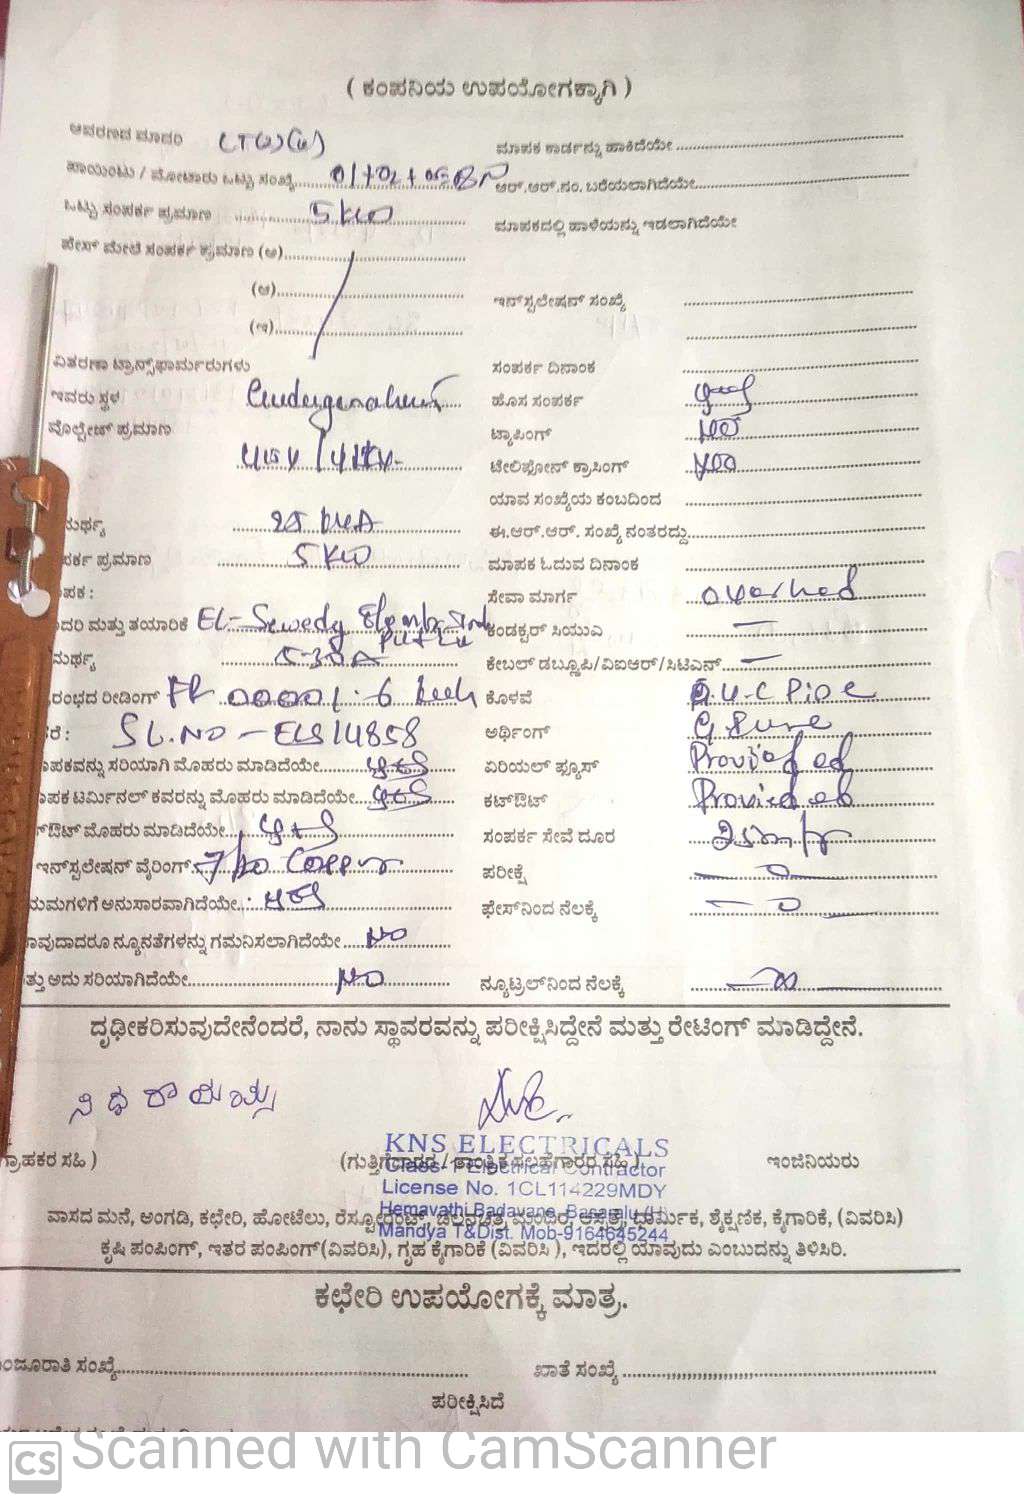 ( ಕಂಪನಿಯ ಉಪಯೋಗಕ್ಕಾಗಿ )
ಆವರಣದ ಮಾದರಿ
ಮಾಪಕ ಕಾರ್ಡನ್ನು ಹಾಕಿದೆಯೇ
ಪಾಯಿಂಟು / ಮೋಟಾರು ಒಟ್ಟು ಸಂಖ್ಯೆ
ಆರ್.ಆರ್.ನಂ. ಬರೆಯಲಾಗಿದೆಯೇ
ಒಟ್ಟು ಸಂಪರ್ಕ ಪ್ರಮಾಣ 5 KW
ಮಾಪಕದಲ್ಲಿ ಹಾಳೆಯನ್ನು ಇಡಲಾಗಿದೆಯೇ
ಪೇಸ್ ಮೇಲೆ ಸಂಪರ್ಕ ಪ್ರಮಾಣ (ಅ)
(ಆ)
ಇನ್‌ಸ್ಟಲೇಷನ್ ಸಂಖ್ಯೆ
(ಇ)
ವಿತರಣಾ ಟ್ರಾನ್ಸ್‌ಫಾರ್ಮರುಗಳು
ಸಂಪರ್ಕ ದಿನಾಂಕ
ಇವರು ಸ್ಥಳ
ಹೊಸ ಸಂಪರ್ಕ
ವೊಲ್ಟೇಜ್ ಪ್ರಮಾಣ
ಟ್ಯಾಪಿಂಗ್ NO
ಟೇಲಿಫೋನ್ ಕ್ರಾಸಿಂಗ್ NO
ಯಾವ ಸಂಖ್ಯೆಯ ಕಂಬದಿಂದ
ಮರ್ಥ್ಯ 25 KVA
ಈ.ಆರ್.ಆರ್. ಸಂಖ್ಯೆ ನಂತರದ್ದು
ಪರ್ಕ ಪ್ರಮಾಣ 5 KW
ಮಾಪಕ ಓದುವ ದಿನಾಂಕ
ಪಕ :
ಸೇವಾ ಮಾರ್ಗ overhed
ದರಿ ಮತ್ತು ತಯಾರಿಕೆ EL-Sewedy
ಕಂಡಕ್ಟರ್ ಸಿಯುಎ —
ಮರ್ಥ್ಯ 5-30A
ಕೇಬಲ್ ಡಬ್ಲೂಪಿ/ವಿಐಆರ್/ಸಿಟಿಎನ್ —
ರಂಭದ ರೀಡಿಂಗ್ FR 00001.6 kwh
ಕೊಳವೆ P.V.C Pipe
ರೆ : SL.NO - ELS14858
ಅರ್ಥಿಂಗ್
ಾಪಕವನ್ನು ಸರಿಯಾಗಿ ಮೊಹರು ಮಾಡಿದೆಯೇ yes
ಏರಿಯಲ್ ಫ್ಯೂಸ್ Provided
ಾಪಕ ಟರ್ಮಿನಲ್ ಕವರನ್ನು ಮೊಹರು ಮಾಡಿದೆಯೇ yes
ಕಟ್ಔಟ್ Provided
್ಔಟ್ ಮೊಹರು ಮಾಡಿದೆಯೇ yes
ಸಂಪರ್ಕ ಸೇವೆ ದೂರ
ಇನ್‌ಸ್ಟಲೇಷನ್ ವೈರಿಂಗ್ 7/20 Copper
ಪರೀಕ್ಷೆ
ಯಮಗಳಿಗೆ ಅನುಸಾರವಾಗಿದೆಯೇ : yes
ಫೇಸ್‌ನಿಂದ ನೆಲಕ್ಕೆ
ಾವುದಾದರೂ ನ್ಯೂನತೆಗಳನ್ನು ಗಮನಿಸಲಾಗಿದೆಯೇ NO
ತ್ತು ಅದು ಸರಿಯಾಗಿದೆಯೇ NO
ನ್ಯೂಟ್ರಲ್‌ನಿಂದ ನೆಲಕ್ಕೆ
ದೃಢೀಕರಿಸುವುದೇನೆಂದರೆ, ನಾನು ಸ್ಥಾವರವನ್ನು ಪರೀಕ್ಷಿಸಿದ್ದೇನೆ ಮತ್ತು ರೇಟಿಂಗ್ ಮಾಡಿದ್ದೇನೆ.
KNS ELECTRICALS
ಗ್ರಾಹಕರ ಸಹಿ )
(ಗುತ್ತಿಗೆದಾರರ / ತಾಂತ್ರಿಕ ಸಲಹೆಗಾರರ ಸಹಿ )
ಇಂಜಿನಿಯರು
Class-1 Electrical Contractor
License No. 1CL114229MDY
Hemavathi Badavane, Basaralu (H)
ವಾಸದ ಮನೆ, ಅಂಗಡಿ, ಕಛೇರಿ, ಹೋಟೆಲು, ರೆಸ್ಟೋರೆಂಟ್, ಚಲನಚಿತ್ರ ಮಂದಿರ, ಆಸ್ಪತ್ರೆ, ಧಾರ್ಮಿಕ, ಶೈಕ್ಷಣಿಕ, ಕೈಗಾರಿಕೆ, (ವಿವರಿಸಿ)
Mandya T&Dist. Mob-9164645244
ಕೃಷಿ ಪಂಪಿಂಗ್, ಇತರ ಪಂಪಿಂಗ್(ವಿವರಿಸಿ), ಗೃಹ ಕೈಗಾರಿಕೆ (ವಿವರಿಸಿ ), ಇದರಲ್ಲಿ ಯಾವುದು ಎಂಬುದನ್ನು ತಿಳಿಸಿರಿ.
ಕಛೇರಿ ಉಪಯೋಗಕ್ಕೆ ಮಾತ್ರ.
ಂಜೂರಾತಿ ಸಂಖ್ಯೆ
ಖಾತೆ ಸಂಖ್ಯೆ
ಪರೀಕ್ಷಿಸಿದೆ
CS Scanned with CamScanner